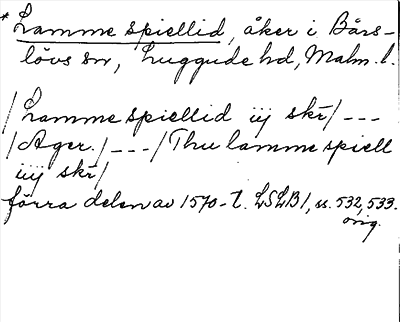 * Lammespiellid, åker i Bårs-
lövs sn, Luggude hd, Malm. l.
/Lammespiellid iij skr̄/ ---
/Ager./ ---/Thu lammespiell
iiij skr̄/
förra delen av 1570-t. LSLB1, ss. 532, 533.
orig.